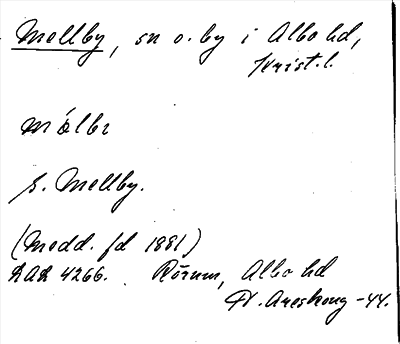 Mellby, sn o. by i Albo hd,
Krist. l.
mälbı
s. Mellby.
(Medd. fd 1881)
4266. Rörum, Albo hd
Areskoug -44.